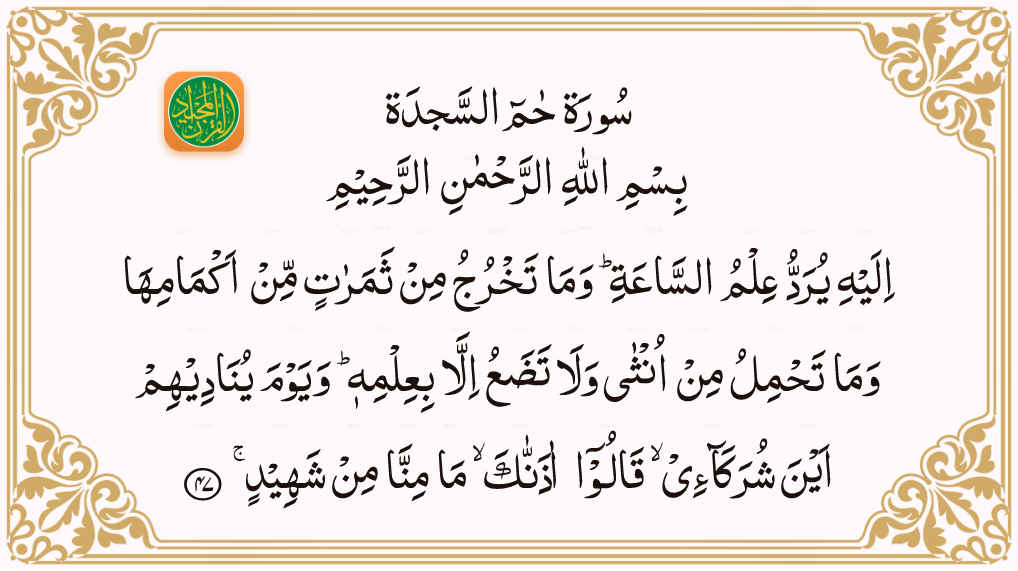 القرآن المجيد
سُورَة حٰمٓ السَّجدَة
بِسْمِ اللّٰهِ الرَّحْمٰنِ الرَّحِيْمِ
اِلَيْهِ يُرَدُّ عِلْمُ السَّاعَةِ ؕ وَمَا تَخْرُجُ مِنْ ثَمَرٰتٍ مِّنْ اَكْمَامِهَا
وَمَا تَحْمِلُ مِنْ اُنْثٰى وَلَا تَضَعُ اِلَّا بِعِلْمِهٖ ؕ وَيَوْمَ يُنَادِيْهِمْ
اَيْنَ شُرَكَآءِىْ ۙ قَالُوْٓا اٰذَنّٰكَ ۙ مَا مِنَّا مِنْ شَهِيْدٍ ۚ ﴿۴۷﴾